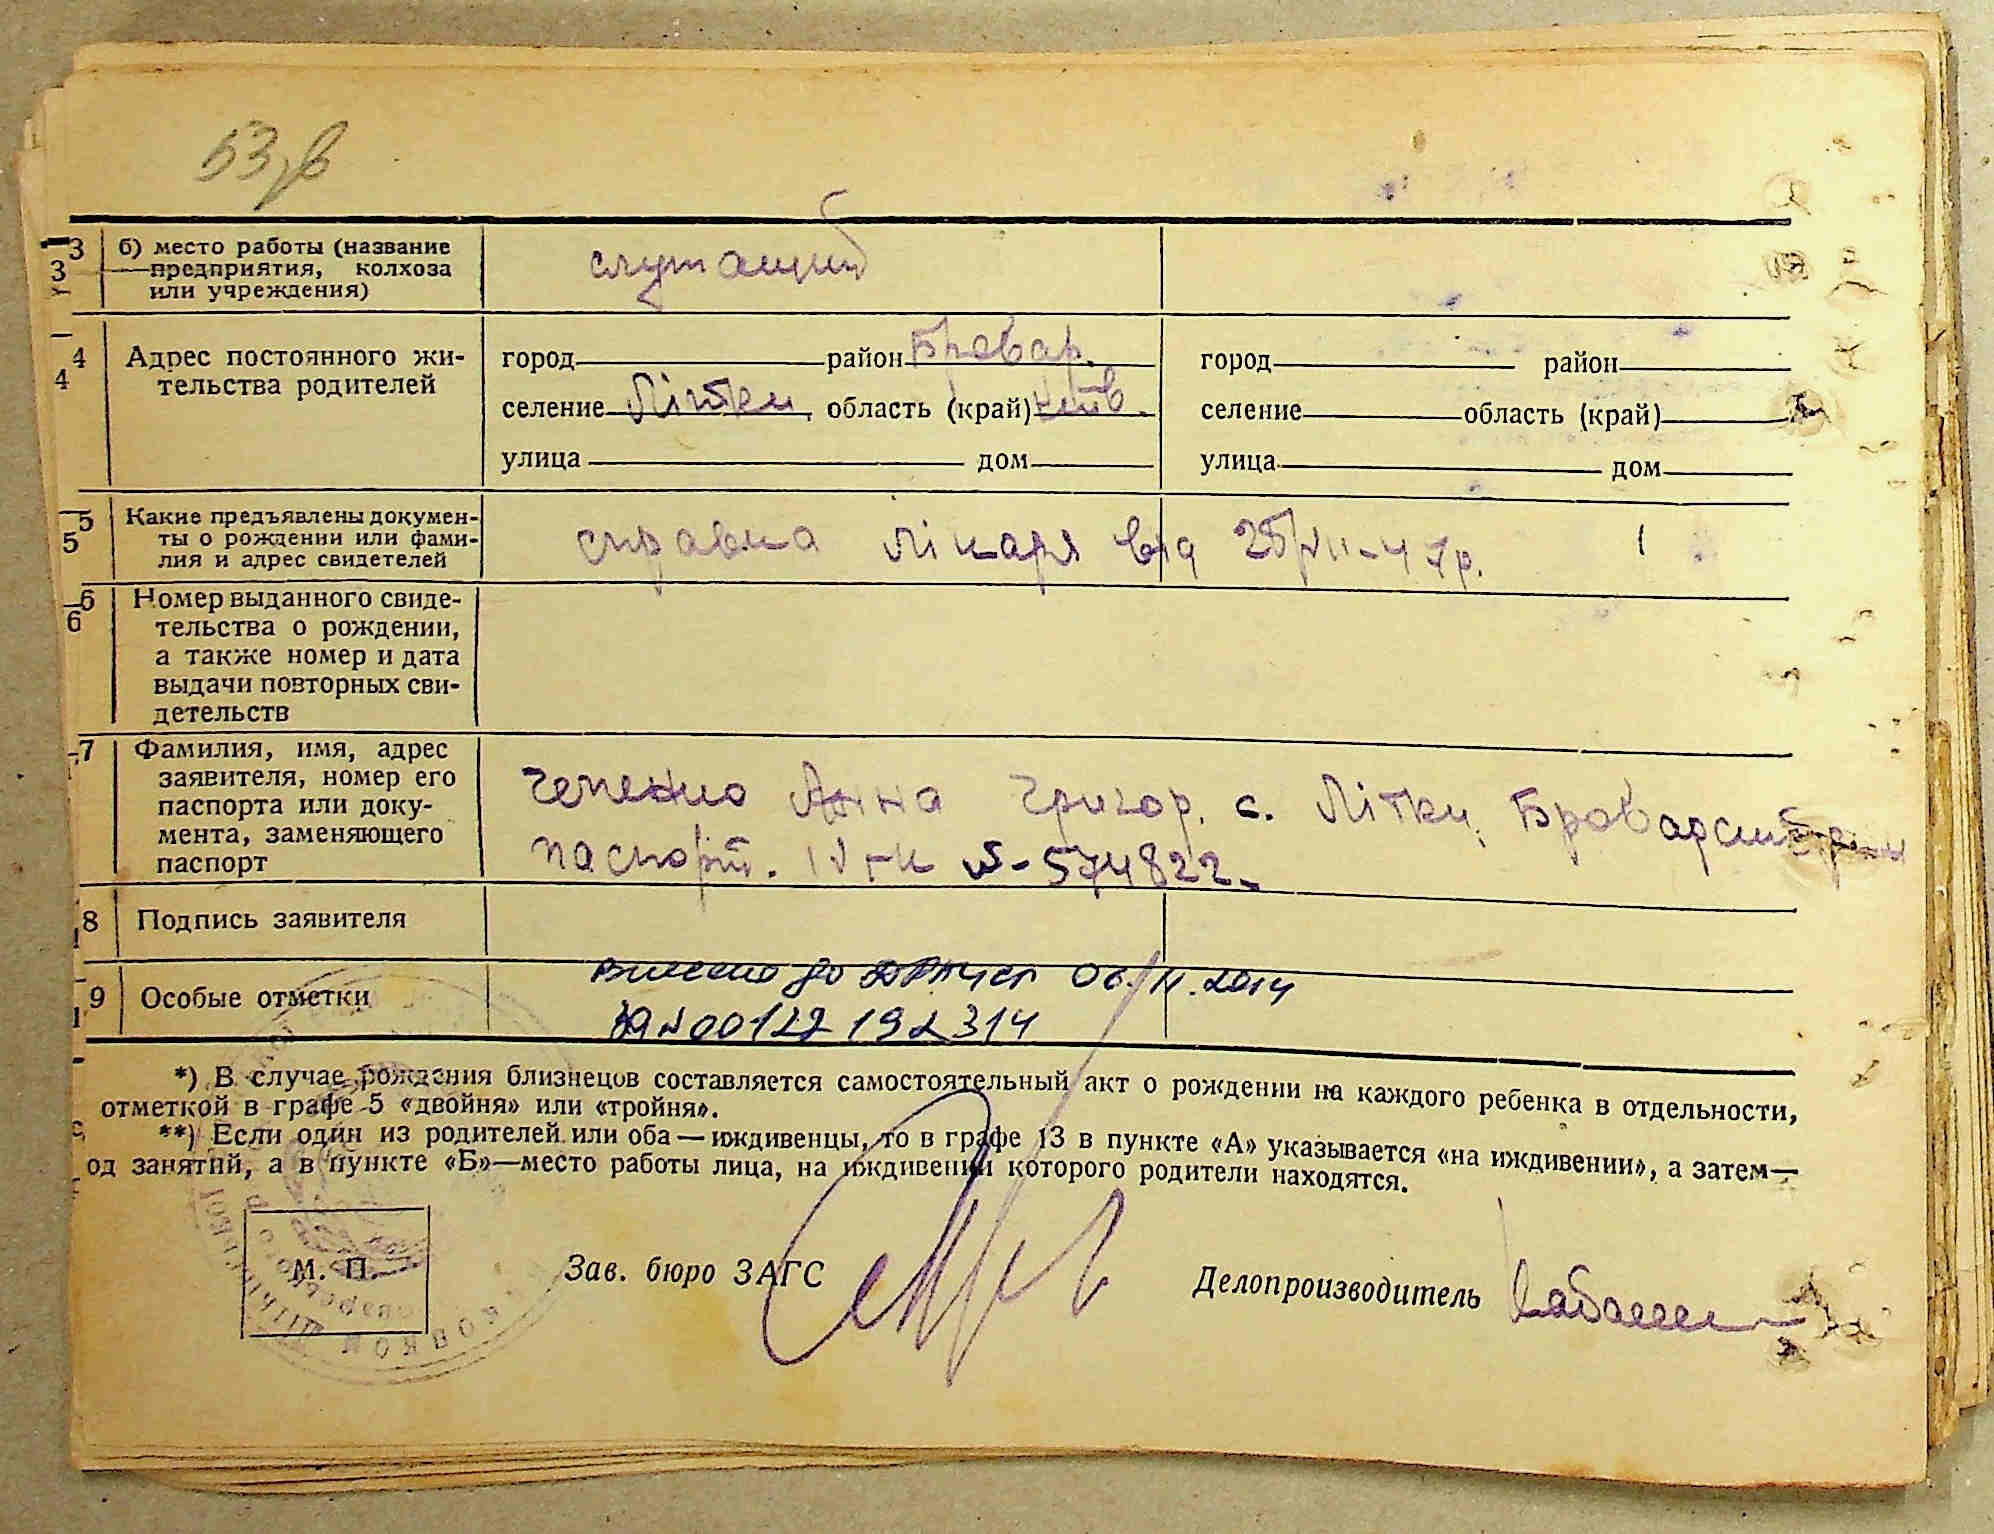 53
3 б) место работы (название служащий
3 предприятия, колхоза
или учреждения)
4 Адрес постоянного жи- город район Бровар. город район
4 тельства родителей селение Літки, область (край) Київ. селение область (край)
улица дом улица дом
5 Какие предъявлены докумен- справка лікаря від 25/VII-47р.
5 ты о рождении или фами-
лия и адрес свидетелей
6 Номер выданного свиде-
6 тельства о рождении,
а также номер и дата
выдачи повторных сви-
детельств
7 Фамилия, имя, адрес
заявителя, номер его Анна Григор. с. Літки, Броварськ
паспорта или доку-
мента, заменяющего паспорт. 574822
паспорт
8 Подпись заявителя
Внесено до ДРАЦСГ 06. 11. 2014
9 Особые отметки за № 00122192314
*) В случае рождения близнецов составляется самостоятельный акт о рождении на каждого ребенка в отдельности,
отметкой в графе 5 «двойня» или «тройня».
**) Если один из родителей или оба — иждивенцы, то в графе 13 в пункте «А» указывается «на иждивении», а затем—
од занятий, а в пункте «Б»—место работы лица, на иждивении которого родители находятся.
М. П. Зав. бюро ЗАГС Делопроизводитель